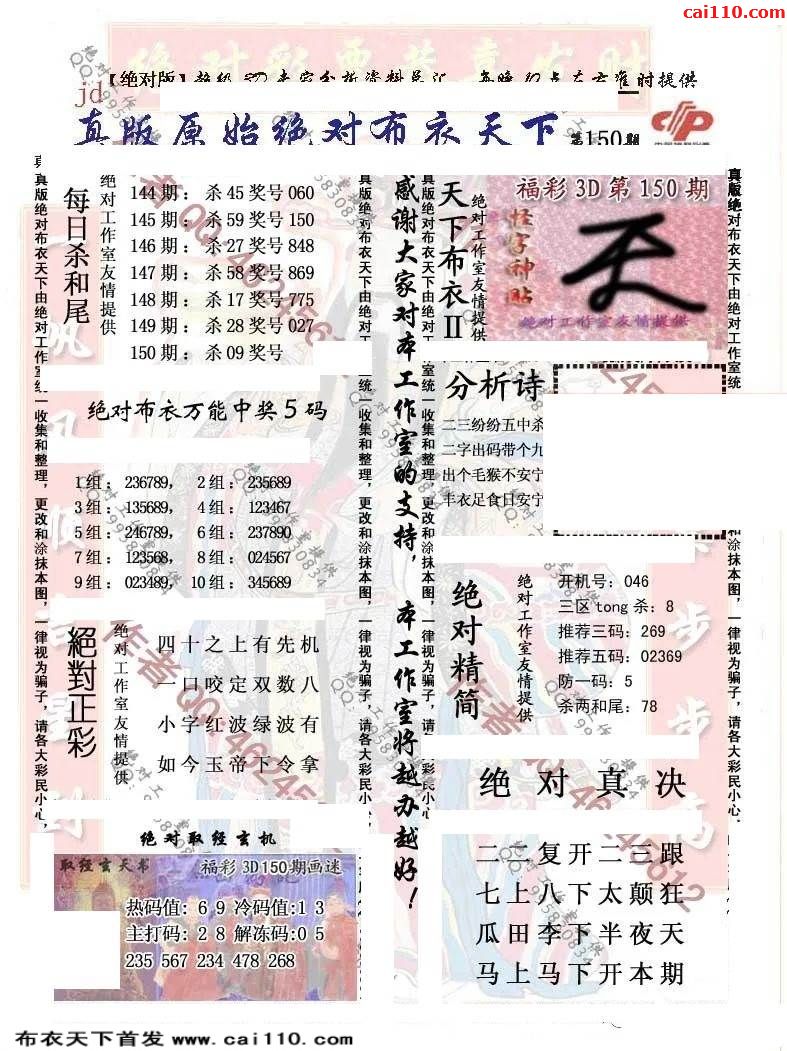 cai110.com
【绝对版】
时提供
jd
真版原始绝对布衣天下 第150期
每日杀和尾
绝对工作室友情提供
144期：杀45奖号060
145期：杀59奖号150
146期：杀27奖号848
147期：杀58奖号869
148期：杀17奖号775
149期：杀28奖号027
150期：杀09奖号
绝对布衣万能中奖5码
1组：236789，  2组：235689
3组：135689，  4组：123467
5组：246789，  6组：237890
7组：123568，  8组：024567
9组：023489，  10组：345689
絕對正彩
绝对工作室友情提供
四十之上有先机
一口咬定双数八
小字红波绿波有
如今玉帝下令拿
绝对取经玄机
取经玄天书
福彩3D150期画迷
热码值：6 9 冷码值:1 3
主打码：2 8 解冻码:0 5
235 567 234 478 268
感谢大家对本工作室的支持，本工作室将越办越好！
天下布衣II
绝对工作室友情提供
福彩3D第150期
怪字神贴
绝对工作室友情提供
分析诗
二三纷纷五中杀
二字出码带个九
出个毛猴不安宁
丰衣足食日安宁
绝对精简
绝对工作室友情提供
开机号：046
三区tong杀：8
推荐三码：269
推荐五码：02369
防一码：5
杀两和尾：78
绝对真决
二二复开二三跟
七上八下太颠狂
瓜田李下半夜天
马上马下开本期
真版绝对布衣天下由绝对工作室统一收集和整理，更改和涂抹本图，一律视为骗子，请各大彩民小心．
布衣天下首发 www.cai110.com